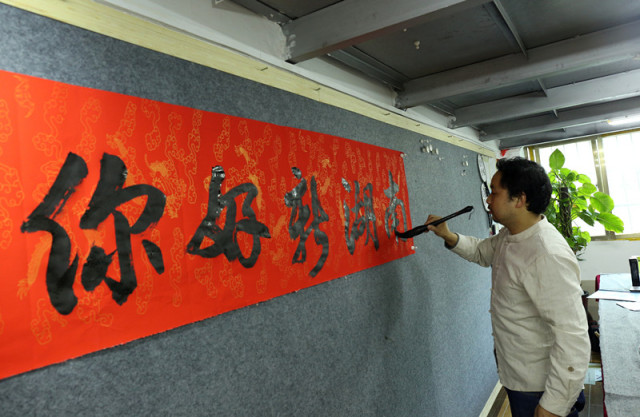 你好新湖南